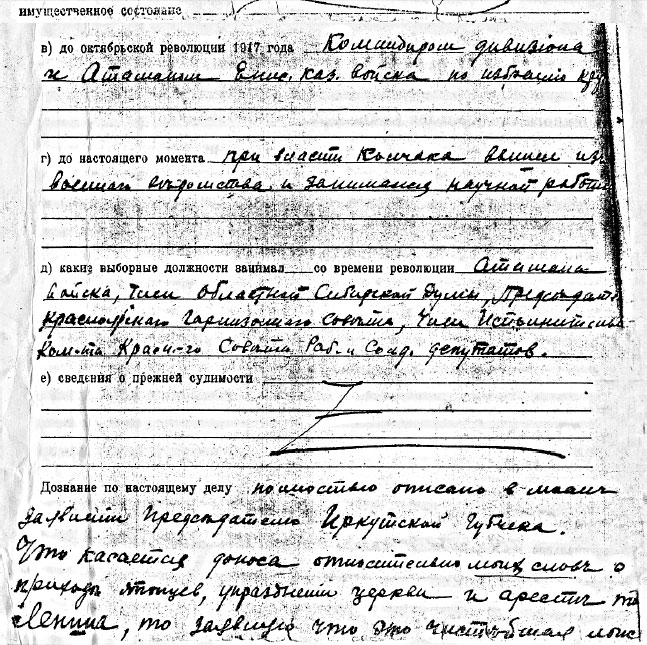 имущественное состояние
в) до октябрьской революции 1917 года Командиром дивизиона
и Атаманом Енис. каз. войска по избранию
г) до настоящего момента при власти Колчака вышел из
военного ведомства и занимался научной работ
д) какие выборные должности занимал со времени революции Атамана
войска, Член Областной Сибирской Думы, Председат
красноярского Гарнизонного совета, Член Исполнительн
Ком-та Красн-го Совета Раб. и Солд. депутатов.
е) сведения о прежней судимости
Дознание по настоящему делу полностью описано в моем
заявлении Председателю Иркутской Губчека.
Что касается доноса относительно моих слов о
приходе японцев, упразднении церкви и аресте
Ленина, то заявляю что это чистейшая